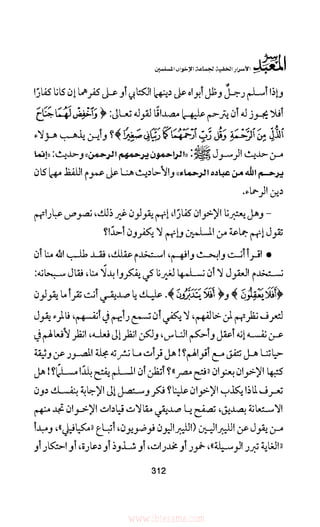 سر المعبد الأسرار الخفية لجماعة الإخوان المسلمين
وإذا أسلم رجلٌ وظل أبواه على دينهما الكتابي أو على كفرهما إن كانا كفارًا
أفلا يجوز له أن يترحم عليهما مصداقًا لقوله تعالى: ﴿ وَاخْفِضْ لَهُمَا جَنَاحَ
الذُّلِّ مِنَ الرَّحْمَةِ وَقُلْ رَبِّ ارْحَمْهُمَا كَمَا رَبَّيَانِي صَغِيرًا ﴾؟ وأين يذهب هؤلاء
من حديث الرسول ﷺ: «الراحمون يرحمهم الرحمن» وحديث: «إنما
يرحم الله من عباده الرحماء» والأحاديث هنا على عموم اللفظ مهما كان
دين الرحماء.
- وهل يعتبرنا الإخوان كفارًا، إنهم يقولون غير ذلك، نصوص عباراتهم
تقول إنهم جماعة من المسلمين وإنهم لا يكفرون أحدًا؟
• اقرأ أنت وابحث وافهم، استخدم عقلك، فقد طلب الله منا أن
نستخدم العقول لا أن نسلمها لغيرنا كي يفكروا بدلًا منا، فقال سبحانه:
﴿أَفَلَا يَعْقِلُونَ﴾ و﴿ أَفَلَا يَتَدَبَّرُونَ ﴾. عليك يا صديقي أنت تقرأ ما يقولون
لتعرف نظرتهم لمن خالفهم، لا يكفي أن تسمع رأيهم في أنفسهم، فالمرء يقول
عن نفسه إنه أعقل وأحكم الناس، ولكن انظر إلى فعله، انظر لأفعالهم في
حياتنا هل تتفق مع أقوالهم؟! هل قرأت ما نشرته مجلة المصور عن وثيقة
كتبها الإخوان بعنوان «فتح مصر»؟ أتظن أن المسلم يفتح بلدًا مسلمًا؟! هل
تعرف لماذا يكذب الإخوان علينا؟ فكر وستصل إلى الإجابة بنفسك دون
الاستعانة بصديق، تصفح يا صديقي مقالات قيادات الإخوان تجد منهم
من يقول عن الليبراليين (الليبراليون فوضويون، أتباع «مكيافيلي»، ومبدأ
«الغاية تبرر الوسيلة»، خمور أو مخدرات، أو شذوذ أو دعارة، أو احتكار أو
312
www.ibtesama.com